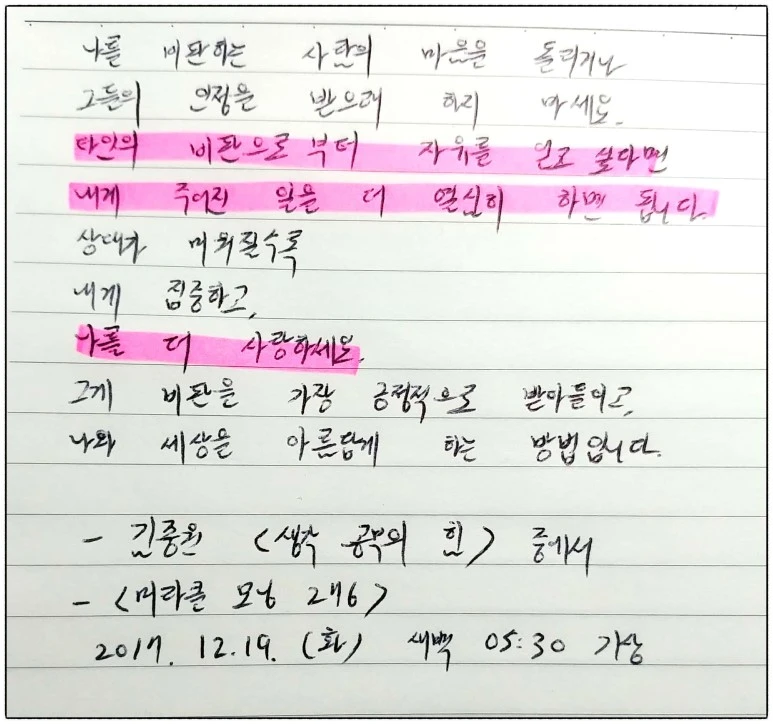 나를 비판하는 사람의 마음을 돌리거나
그들의 인정을 받으려 하지 마세요.
타인의 비판으로 부터 자유를 얻고 싶다면
내게 주어진 일을 더 열심히 하면 됩니다.
상대가 미워질수록
내게 집중하고,
나를 더 사랑하세요.
그게 비판을 가장 긍정적으로 받아들이고,
나와 세상을 아름답게 하는 방법입니다.
- 김종원 <생각 공부의 힘> 중에서
- <미라클 모닝 276>
2017. 12.19. (화) 새벽 05:30 기상